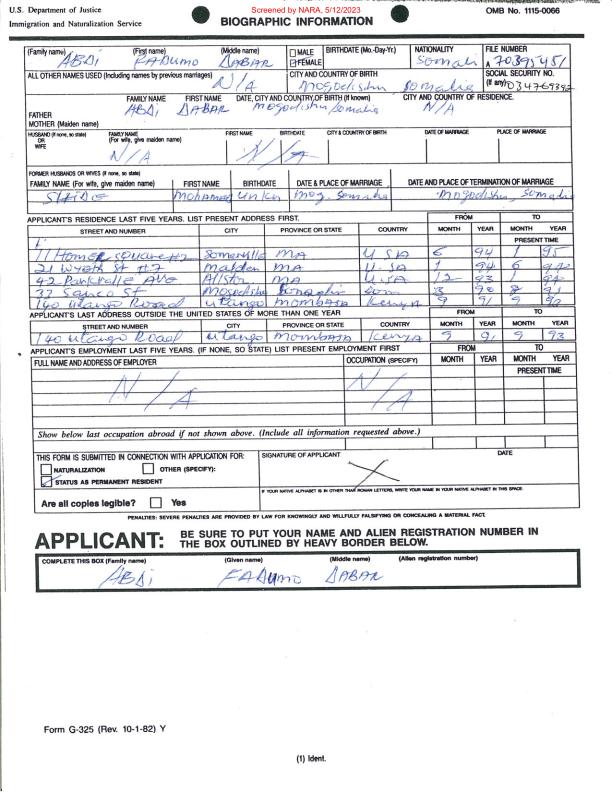 U.S. Department of Justice
Immigration and Naturalization Service
Screened by NARA, 5/12/2023
BIOGRAPHIC INFORMATION
OMB No. 1115-0066
(Family name) (First name) (Middle name) MALE FEMALE BIRTHDATE (Mo.-Day-Yr.) NATIONALITY FILE NUMBER
ABDI FADUMO DABAR Somali A 70395451
ALL OTHER NAMES USED (Including names by previous marriages) CITY AND COUNTRY OF BIRTH SOCIAL SECURITY NO. (If any)
N/A Mogodishu Somalia
FAMILY NAME FIRST NAME DATE, CITY AND COUNTRY OF BIRTH (If known) CITY AND COUNTRY OF RESIDENCE.
FATHER ABDI DABAR Mogodishu Somalia N/A
MOTHER (Maiden name)
HUSBAND (If none, so state) OR WIFE FAMILY NAME (For wife, give maiden name) FIRST NAME BIRTHDATE CITY & COUNTRY OF BIRTH DATE OF MARRIAGE PLACE OF MARRIAGE
N/A N/A
FORMER HUSBANDS OR WIVES (If none, so state)
FAMILY NAME (For wife, give maiden name) FIRST NAME BIRTHDATE DATE & PLACE OF MARRIAGE DATE AND PLACE OF TERMINATION OF MARRIAGE
Mohamed unkn Mog. Somalia Mogodishu, Somalia
APPLICANT'S RESIDENCE LAST FIVE YEARS. LIST PRESENT ADDRESS FIRST. FROM TO
STREET AND NUMBER CITY PROVINCE OR STATE COUNTRY MONTH YEAR MONTH YEAR
PRESENT TIME
11 Homer Square #2 Somerville MA USA 6 94 1 95
21 Wyeth St #7 Malden MA U.SA 1 94 6
42 Parkvale AVE Allston MA U.SA 12 93 1
Mogodishu Somalia Som 3 90 8 91
140 Utango Road Utango Mombasa Kenya 9 91 9
APPLICANT'S LAST ADDRESS OUTSIDE THE UNITED STATES OF MORE THAN ONE YEAR FROM TO
STREET AND NUMBER CITY PROVINCE OR STATE COUNTRY MONTH YEAR MONTH YEAR
140 Utango Road Utango Mombasa Kenya 9 91 9 93
APPLICANT'S EMPLOYMENT LAST FIVE YEARS. (IF NONE, SO STATE) LIST PRESENT EMPLOYMENT FIRST FROM TO
FULL NAME AND ADDRESS OF EMPLOYER OCCUPATION (SPECIFY) MONTH YEAR MONTH YEAR
PRESENT TIME
N/A N/A
Show below last occupation abroad if not shown above. (Include all information requested above.)
THIS FORM IS SUBMITTED IN CONNECTION WITH APPLICATION FOR: SIGNATURE OF APPLICANT DATE
NATURALIZATION OTHER (SPECIFY):
STATUS AS PERMANENT RESIDENT
IF YOUR NATIVE ALPHABET IS IN OTHER THAN ROMAN LETTERS, WRITE YOUR NAME IN YOUR NATIVE ALPHABET IN THIS SPACE.
Are all copies legible? Yes
PENALTIES: SEVERE PENALTIES ARE PROVIDED BY LAW FOR KNOWINGLY AND WILLFULLY FALSIFYING OR CONCEALING A MATERIAL FACT.
APPLICANT: BE SURE TO PUT YOUR NAME AND ALIEN REGISTRATION NUMBER IN
THE BOX OUTLINED BY HEAVY BORDER BELOW.
COMPLETE THIS BOX (Family name) (Given name) (Middle name) (Alien registration number)
ABDI FADUMO DABAR
Form G-325 (Rev. 10-1-82) Y
(1) Ident.